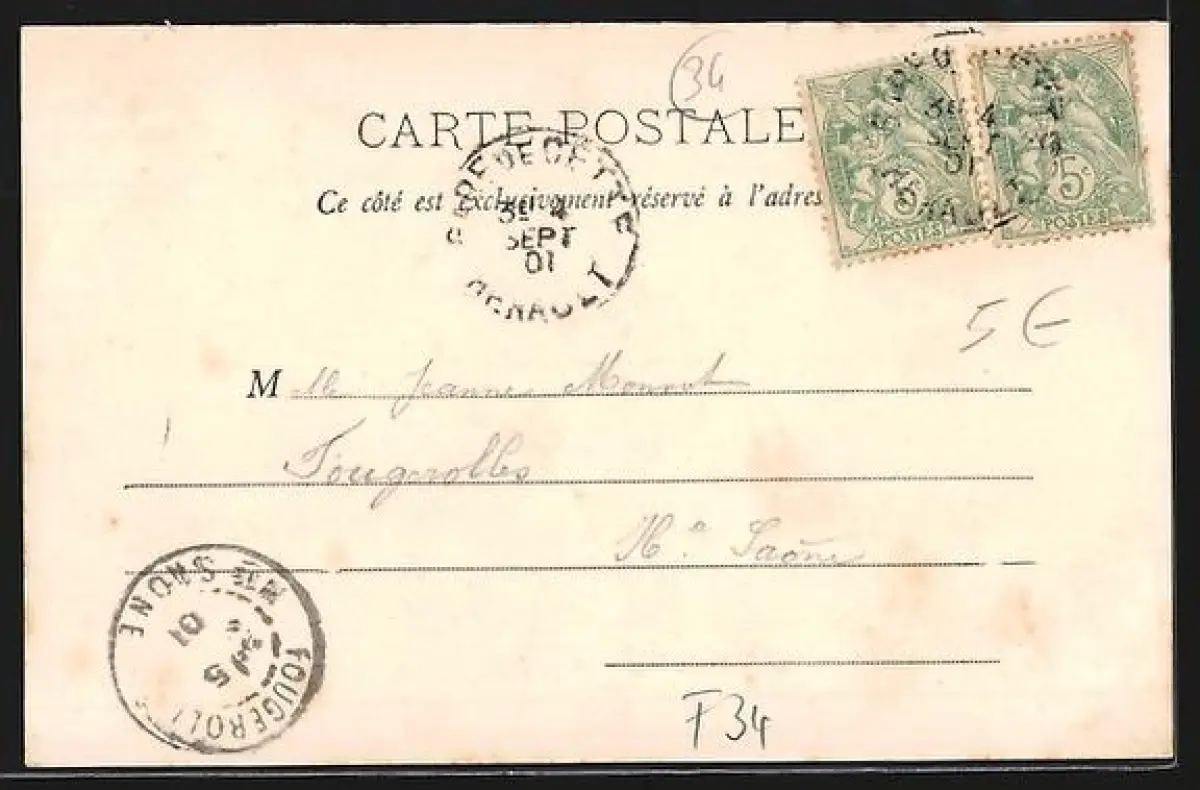 34
CARTE POSTALE
Ce côté est exclusivement réservé à l'adres
3E 4
SEPT
01
HERAULT
5c
POSTES
5c
POSTES
5 €
M lle Jeanne
Fougerolles
Hte Saône
SAONE
01
5
FOUGEROLL
F34